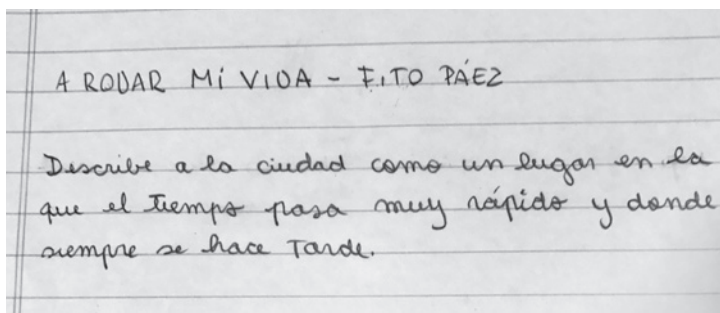 A RODAR Mi VIDA - FITO PÁEZ
Describe a la ciudad como un lugar en la
que el tiempo pasa muy rápido y donde
siempre se hace Tarde.